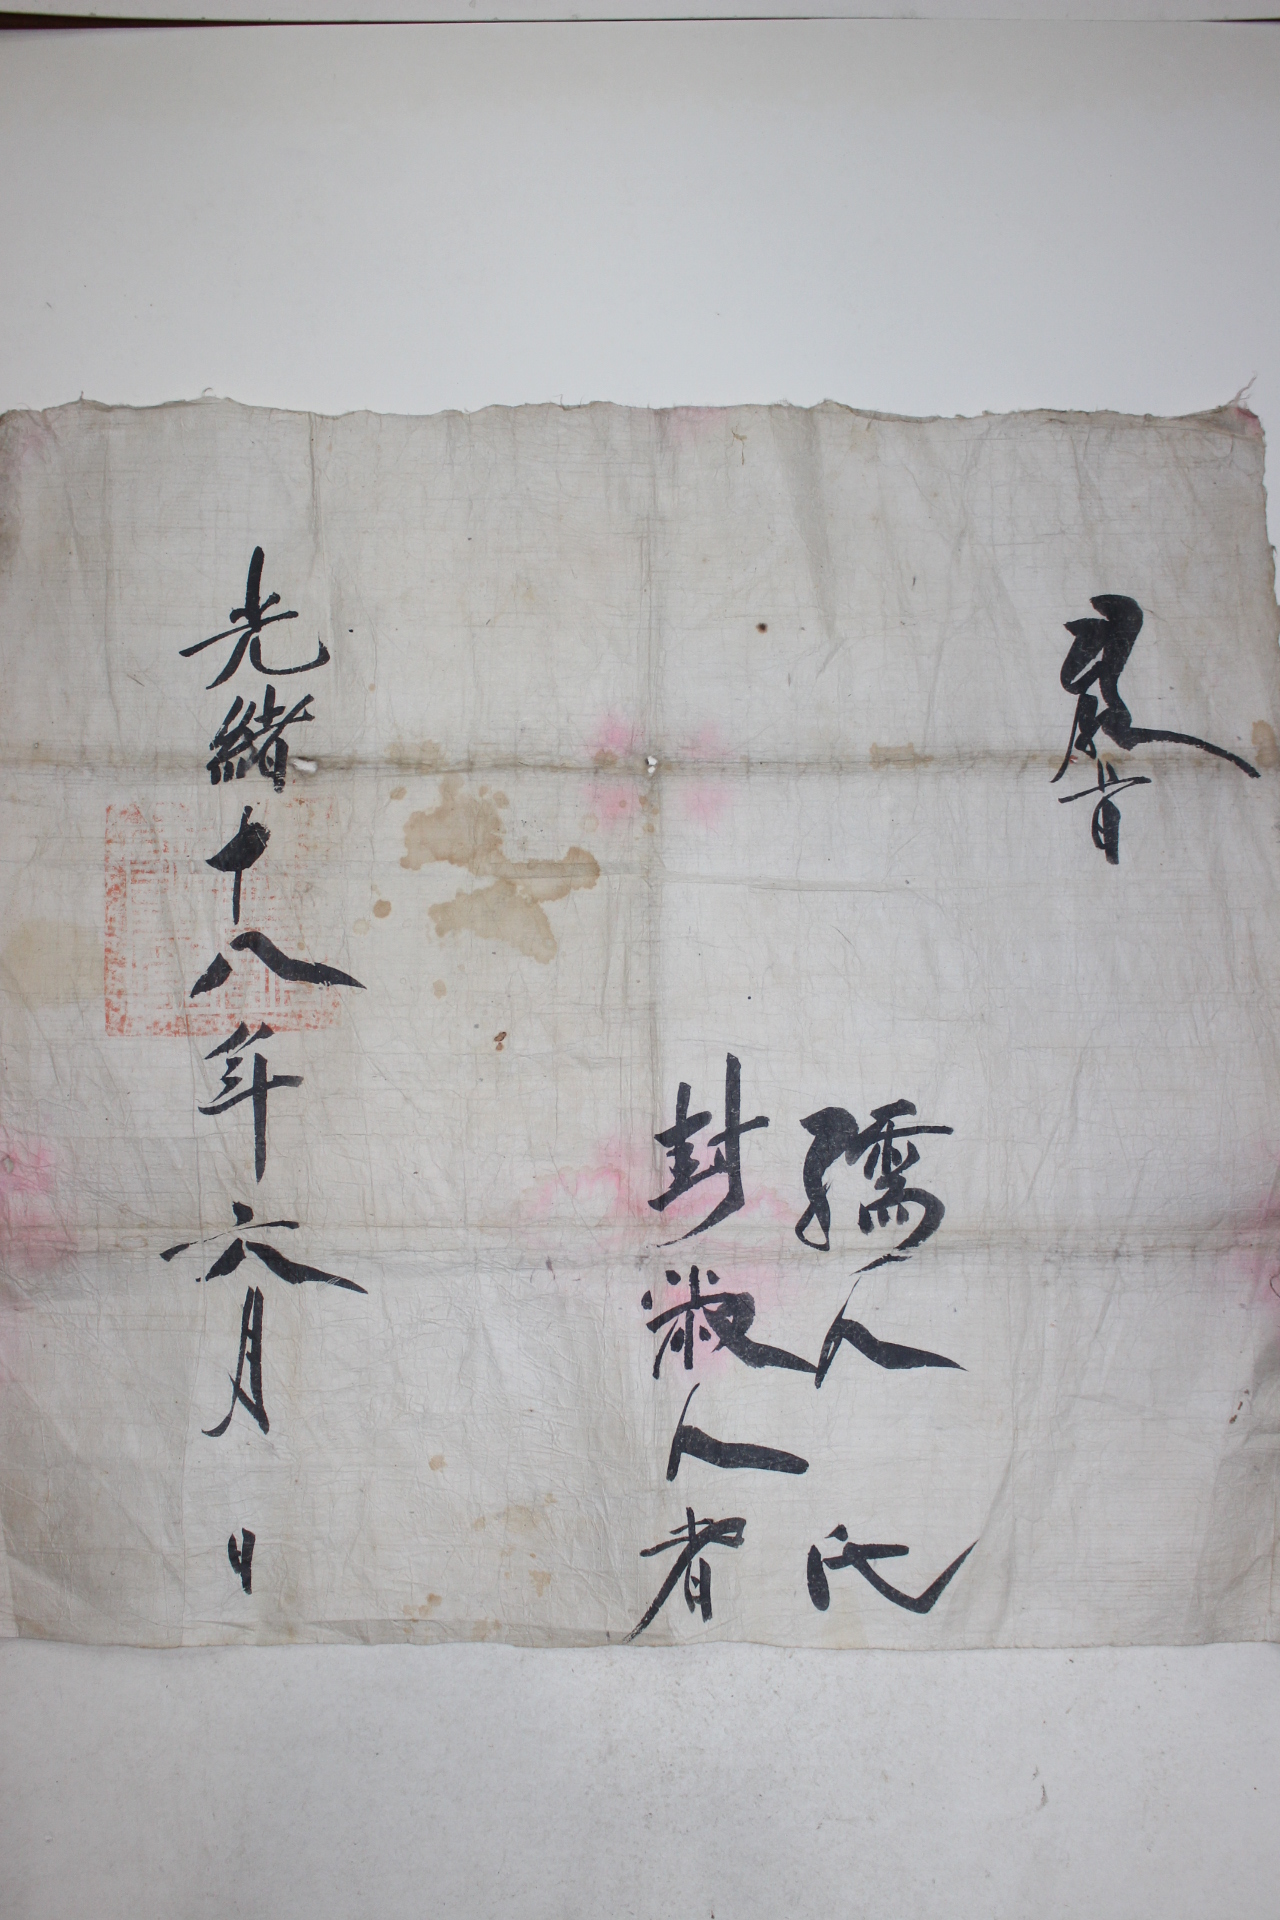 敎旨
孺人　氏
封淑人者
光緖十八年六月　日